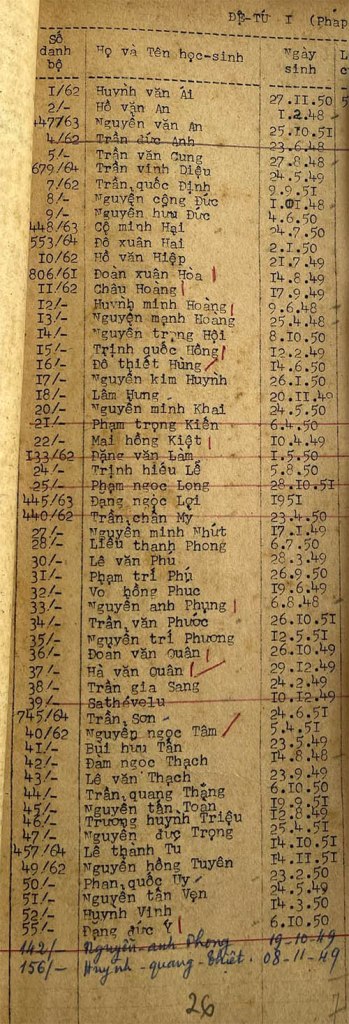 ĐỆ-TỨ I (Pháp
Số danh bộ Họ và Tên học-sinh Ngày sinh L c
I/62 Huỳnh văn Ai 27.II.50 5
2/- Hồ văn An I.2.48
447/63 Nguyễn văn An 25.IO.5I
4/62 Trần đức Anh 23.6.48
5/- Trần văn Cung 27.8.48
679/64 Trần vinh Diệu 24.5.49
7/62 Trần quốc Định 9.9.5I
8/- Nguyễn công Đức I.OI.48
9/- Nguyễn hưu Đức 4.6.50
448/63 Cô minh Hại 24.7.50
553/64 Đỗ xuân Hai 2.I.50
IO/62 Hồ văn Hiệp 2I.7.49
806/6I Đoàn xuân Hòa I4.8.49
II/62 Châu Hoàng I7.9.49
I2/- Huỳnh minh Hoàng 9.6.48
I3/- Nguyễn mạnh Hoàng 25.4.48
I4/- Nguyễn trọng Hội 8.IO.50
I5/- Trịnh quốc Hồng I2.2.49
I6/- Đỗ thiết Hùng I4.6.50
I7/- Nguyễn kim Huỳnh 26.I.50
I8/- Lâm Hưng 20.II.49
20/- Nguyễn minh Khai 24.5.50
2I/- Phạm trọng Kiên 6.4.50
22/- Mai hồng Kiệt IO.4.49
I33/62 Đặng văn Lâm I.5.50
24/- Trịnh hiếu Lễ 5.8.50
25/- Phạm ngọc Long 28.IO.5I
445/63 Đặng ngọc Lợi I95I
440/62 Trần chấn Mỹ 23.4.50
27/- Nguyễn minh Nhựt I7.I.49
28/- Liêu thanh Phong 6.7.50
30/- Lê văn Phu 28.3.49
3I/- Phạm trí Phú 26.9.50
32/- Vo hồng Phuc I9.6.49
33/- Nguyễn anh Phụng 6.8.48
34/- Trần văn Phước 26.IO.5I
35/- Nguyễn tri Phương I2.5.5I
36/- Đoàn văn Quân 26.IO.49
37/- Hà văn Quân 29.I2.49
38/- Trần gia Sang 24.2.49
39/- Sathévelu IO.I2.49
745/64 Trần Sơn 24.6.5I
40/62 Nguyễn ngọc Tâm 5.4.5I
4I/- Bùi hưu Tấn 23.5.49
42/- Đàm ngọc Thạch I4.8.48
43/- Lê văn Thạch 23.9.49
44/- Trần quang Thặng 6.IO.50
45/- Nguyễn tấn Toàn I9.9.5I
46/- Trương huỳnh Triệu I2.8.49
47/- Nguyễn đức Trọng 25.4.5I
457/64 Lê thành Tu I4.IO.5I
49/62 Nguyễn hồng Tuyên I4.II.5I
50/- Phan quốc Uy 23.2.50
5I/- Nguyễn tấn Vẹn 24.5.49
52/- Huỳnh Vinh I4.3.50
55/- Đặng đức Ý 6.IO.50
142/- Nguyễn anh Phong 19-10-49
156/- Huỳnh-quang-Thiết. 08-11-49
26